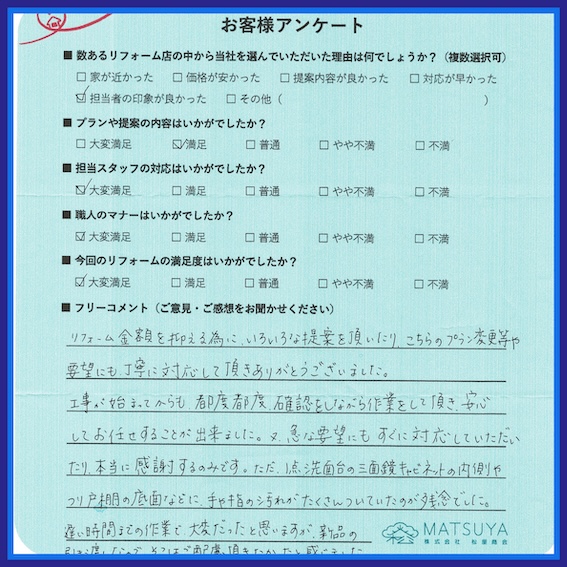 お客様アンケート
■ 数あるリフォーム店の中から当社を選んでいただいた理由は何でしょうか？（複数選択可）
□ 家が近かった □ 価格が安かった □ 提案内容が良かった □ 対応が早かった
☑ 担当者の印象が良かった □ その他（ ）
■ プランや提案の内容はいかがでしたか？
□ 大変満足 ☑ 満足 □ 普通 □ やや不満 □ 不満
■ 担当スタッフの対応はいかがでしたか？
☑ 大変満足 □ 満足 □ 普通 □ やや不満 □ 不満
■ 職人のマナーはいかがでしたか？
☑ 大変満足 □ 満足 □ 普通 □ やや不満 □ 不満
■ 今回のリフォームの満足度はいかがでしたか？
☑ 大変満足 □ 満足 □ 普通 □ やや不満 □ 不満
■ フリーコメント（ご意見・ご感想をお聞かせください）
リフォーム金額を抑える為に、いろいろな提案を頂いたり、こちらのプラン変更等や
要望にも、丁寧に対応して頂きありがとうございました。
工事が始まってからも、都度都度、確認をしながら作業をして頂き、安心
してお任せすることが出来ました。又、急な要望にもすぐに対応していただい
たり、本当に感謝するのみです。ただ、1点洗面台の三面鏡キャビネットの内側や
つり戸棚の底面などに、手や指の汚れがたくさんついていたのが残念でした。
遅い時間までの作業で、大変だったと思いますが、新品の
MATSUYA
株式会社 松屋商会